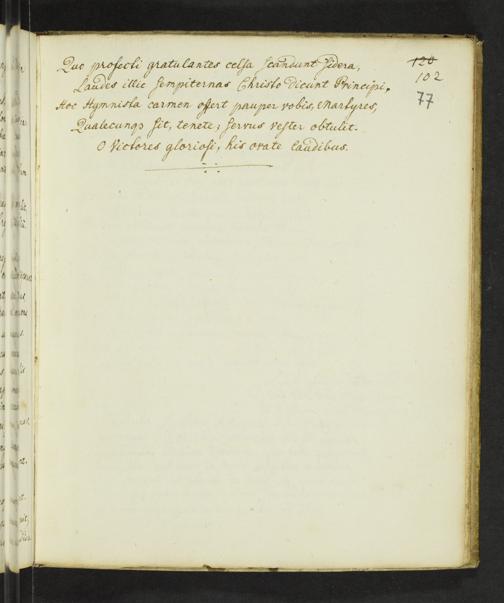 Quo profecti gratulantes celsa scandunt sidera,
Laudes illic sempiternas Christo dicunt Principi,
Hoc Hymnista carmen offert pauper vobis, Martyres,
Qualecunq3 sit, tenete; servus vester obtulit.
O Victores gloriosi, his orate laudibus.
120
102
77